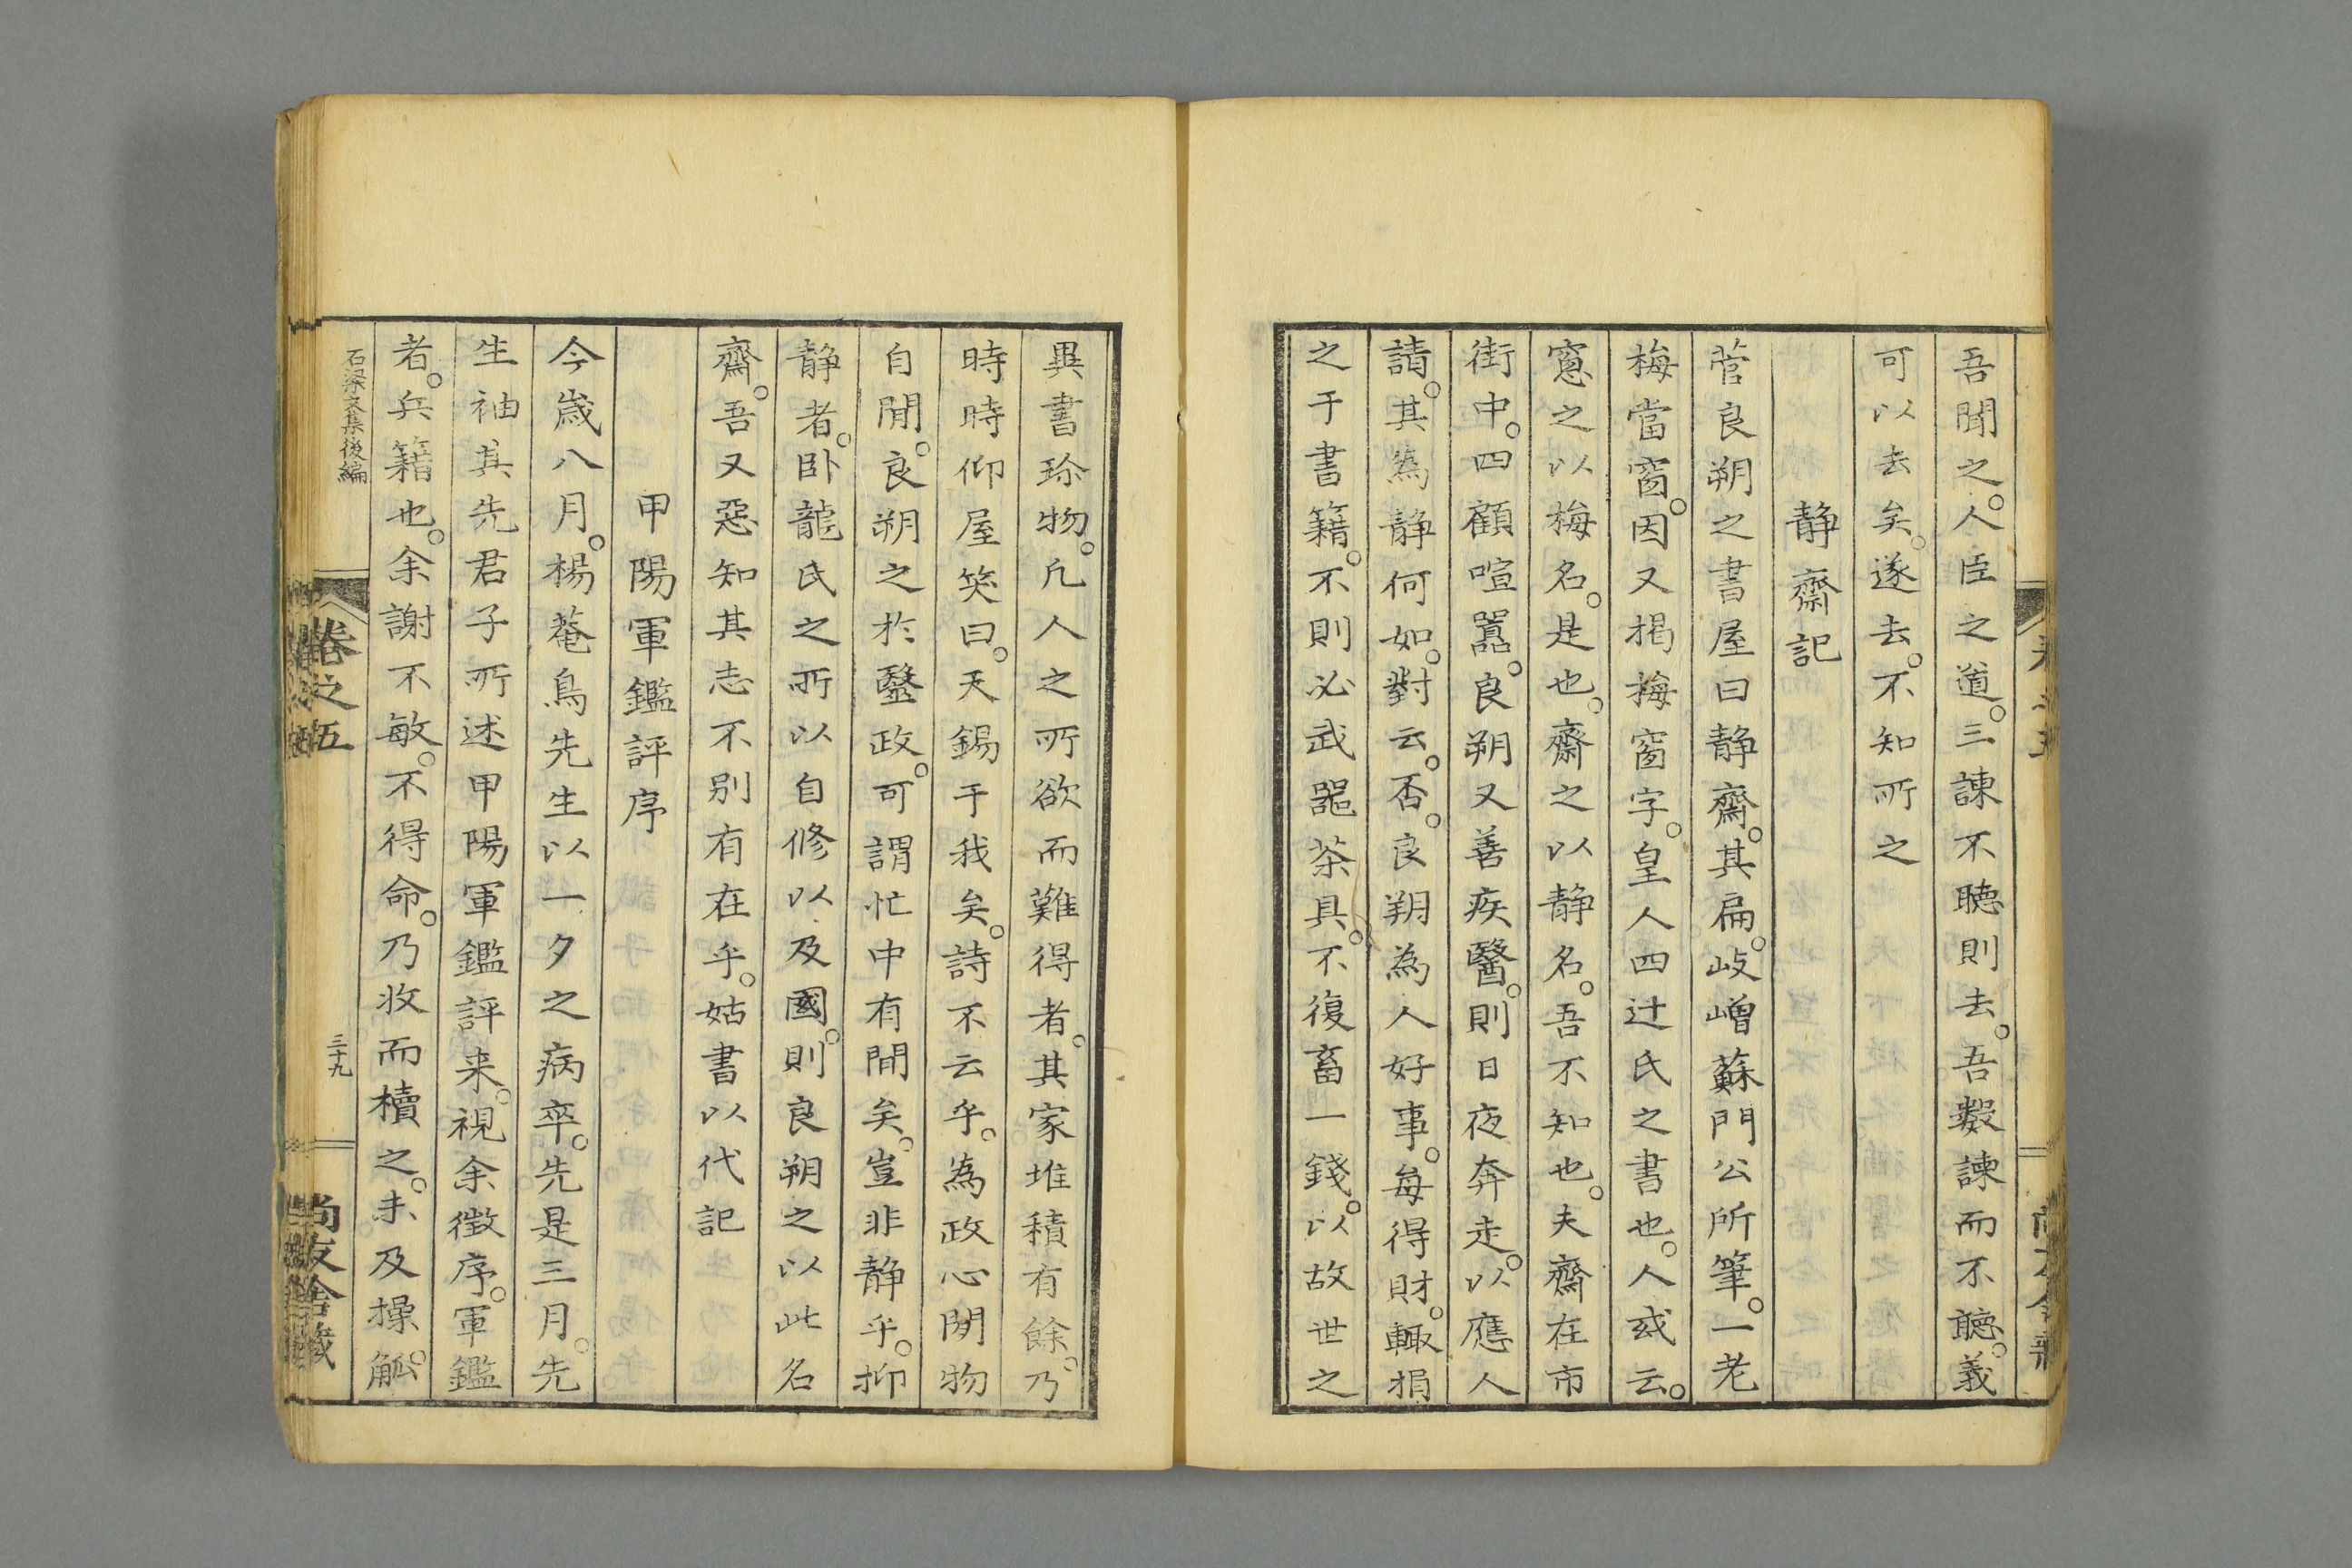 吾聞之。人臣之道。三諫不聽則去。吾數諫而不聽。義
可以去矣。遂去。不知所之
静齋記
菅良朔之書屋曰静齋。其扁。岐嶒蘇門公所筆。一老
梅當窗。因又掲梅窗字。皇人四辻氏之書也。人或云。
窻之以梅名。是也。齋之以静名。吾不知也。夫齋在市
街中。四顧喧囂。良朔又善疾醫。則日夜奔走。以應人
請。其為静何如。對云。否。良朔為人好事。每得財。輙捐
之于書籍。不則必武器茶具。不復畜一錢。以故世之
異書珍物。凡人之所欲而難得者。其家堆積有餘。乃
時時仰屋笑曰。天錫于我矣。詩不云乎。為政心閒物
自閒。良朔之於醫政。可謂忙中有閒矣。豈非静乎。抑
静者。卧龍氏之所以自修以及國。則良朔之以此名
齋。吾又惡知其志不别有在乎。姑書以代記
甲陽軍鑑評序
今歳八月。楊菴鳥先生以一夕之病卒。先是三月。先
生袖其先君子所述甲陽軍鑑評来。視余徴序。軍鑑
者。兵籍也。余謝不敏。不得命。乃收而櫝之。未及操觚。
石梁文集後編
卷之五
三十九
尚友舍藏